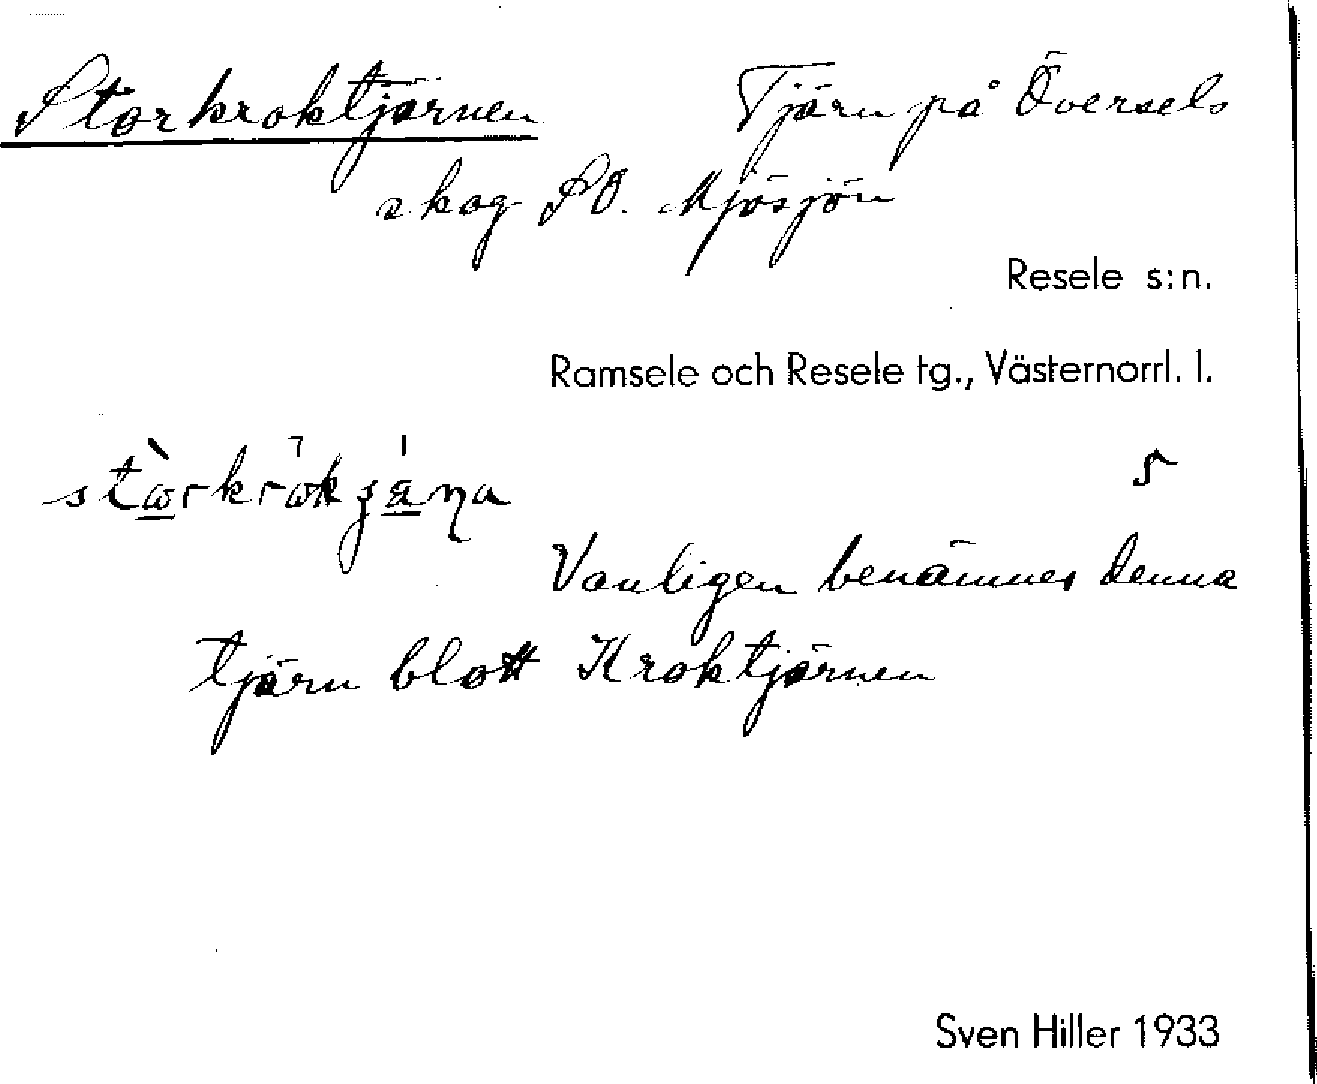 Storkroktjärnen Tjärn på Översels
skog SO. Mjösjön
Resele s:n.
Ramsele och Resele tg., Västernorrl. l.
Vanligen benämnes denna
tjärn blott Kroktjärnen
Sven Hiller 1933